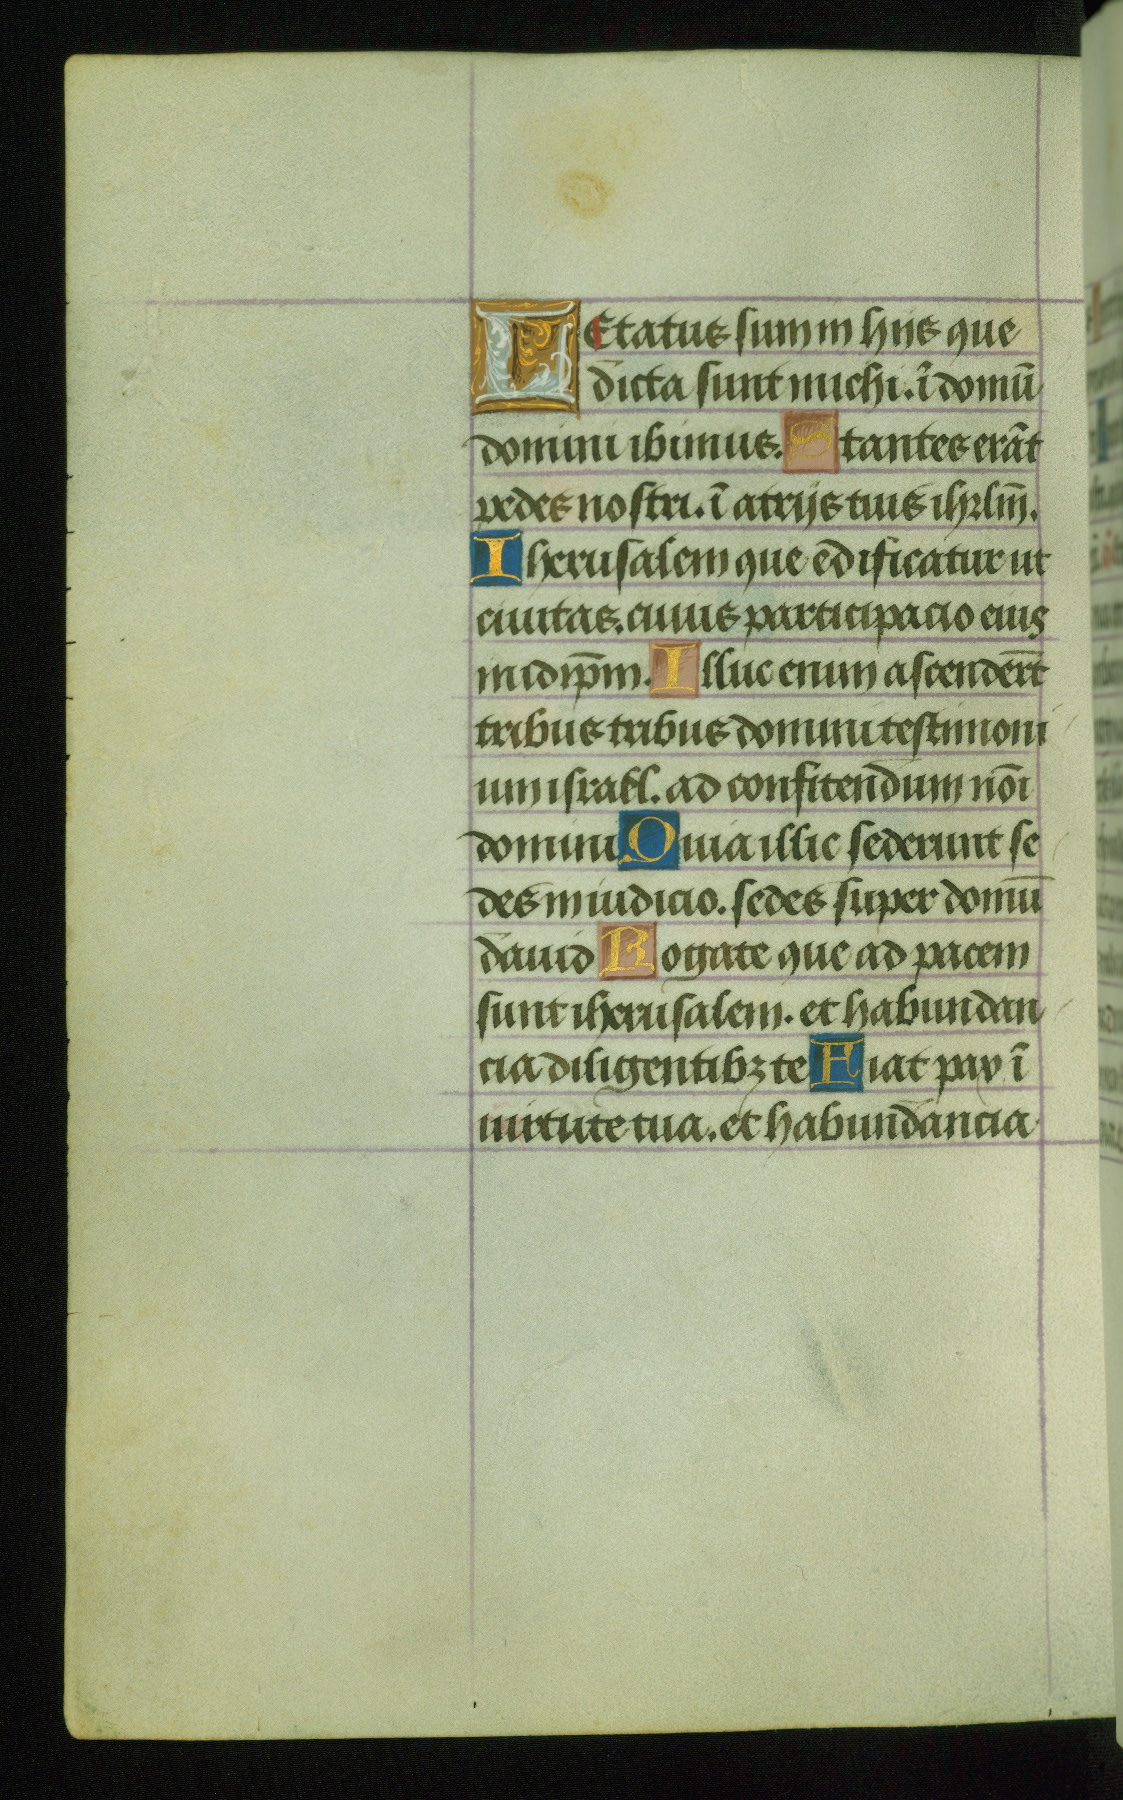 LEtatus sum in hijs que
dicta sunt michi. ĩ domũ
domini ibimus. Stantes erãt
pedes nostri. ĩ atrijs tuis ihrlm̃.
Iherusalem que edificatur ut
ciuitas. cuius participacio eius
in idip̃m. Illuc enim ascender̃t
tribus tribus domini testimoni
um israhl. ad confitendum nõi
domini Quia illic sederunt se
des in iudicio. sedes super domũ
dauid Rogate que ad pacem
sunt iherusalem. et habundan
cia diligentibꝫ te Fiat pax ĩ
uirtute tua. et habundancia